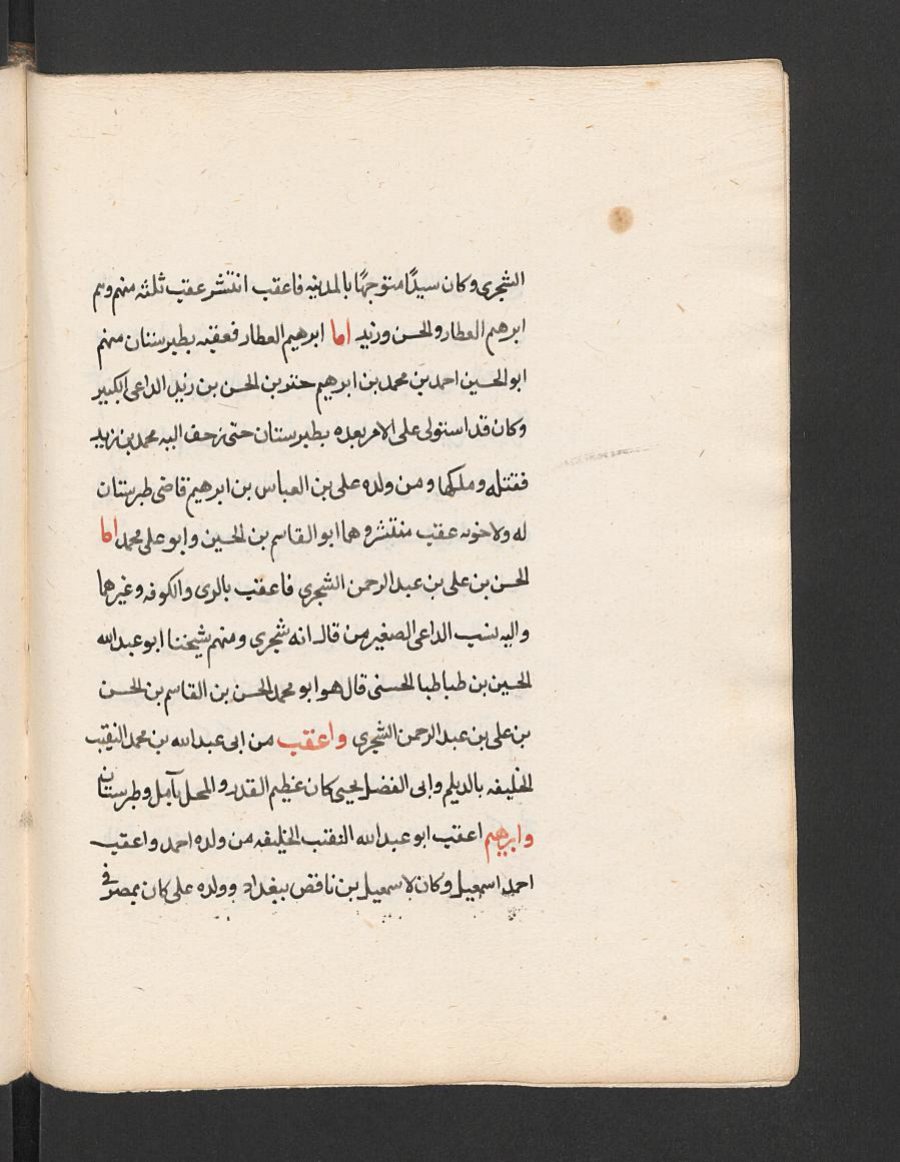 الشجرى وكان سيدًا متوجهًا بالمدينه فاعقب انتشر عقب ثلثه منهم وهم
ابرهيم العطار والحسن وزيد اما ابرهيم العطار فعقبه بطبرستان منهم
ابو الحسين احمد بن محمد بن ابرهيم ختن بن الحسن بن زيد الداعى الكبير
وكان قد استولى على الامر بعده بطبرستان حتى زحف اليه محمد بن زيد
فقتله وملكها ومن ولده على بن العباس بن ابرهيم قاضى طبرستان
له ولاخوته عقب منتشر وهما ابو القاسم بن الحسين وابو على محمد اما
الحسن بن على بن عبد الرحمن الشجرى فاعقب بالرى والكوفه وغيرهما
واليه نسب الداعى الصغير من قال انه شجرى ومنهم شيخنا ابو عبد الله
الحسين بن طباطبا الحسنى قال هو ابو محمد الحسن بن القاسم بن الحسن
بن على بن عبد الرحمن الشجرى واعقب من ابى عبد الله بن محمد النقيب
الخليفه بالديلم وابى الفضل يحيى كان عظيم القدر والمحل بآمل وطبرستان
وابرهيم اعقب ابو عبد الله النقيب الخليفه من ولده احمد واعقب
احمد اسمعيل وكان لاسمعيل بن ناقص ببغداد وولده على كان بمصر فى